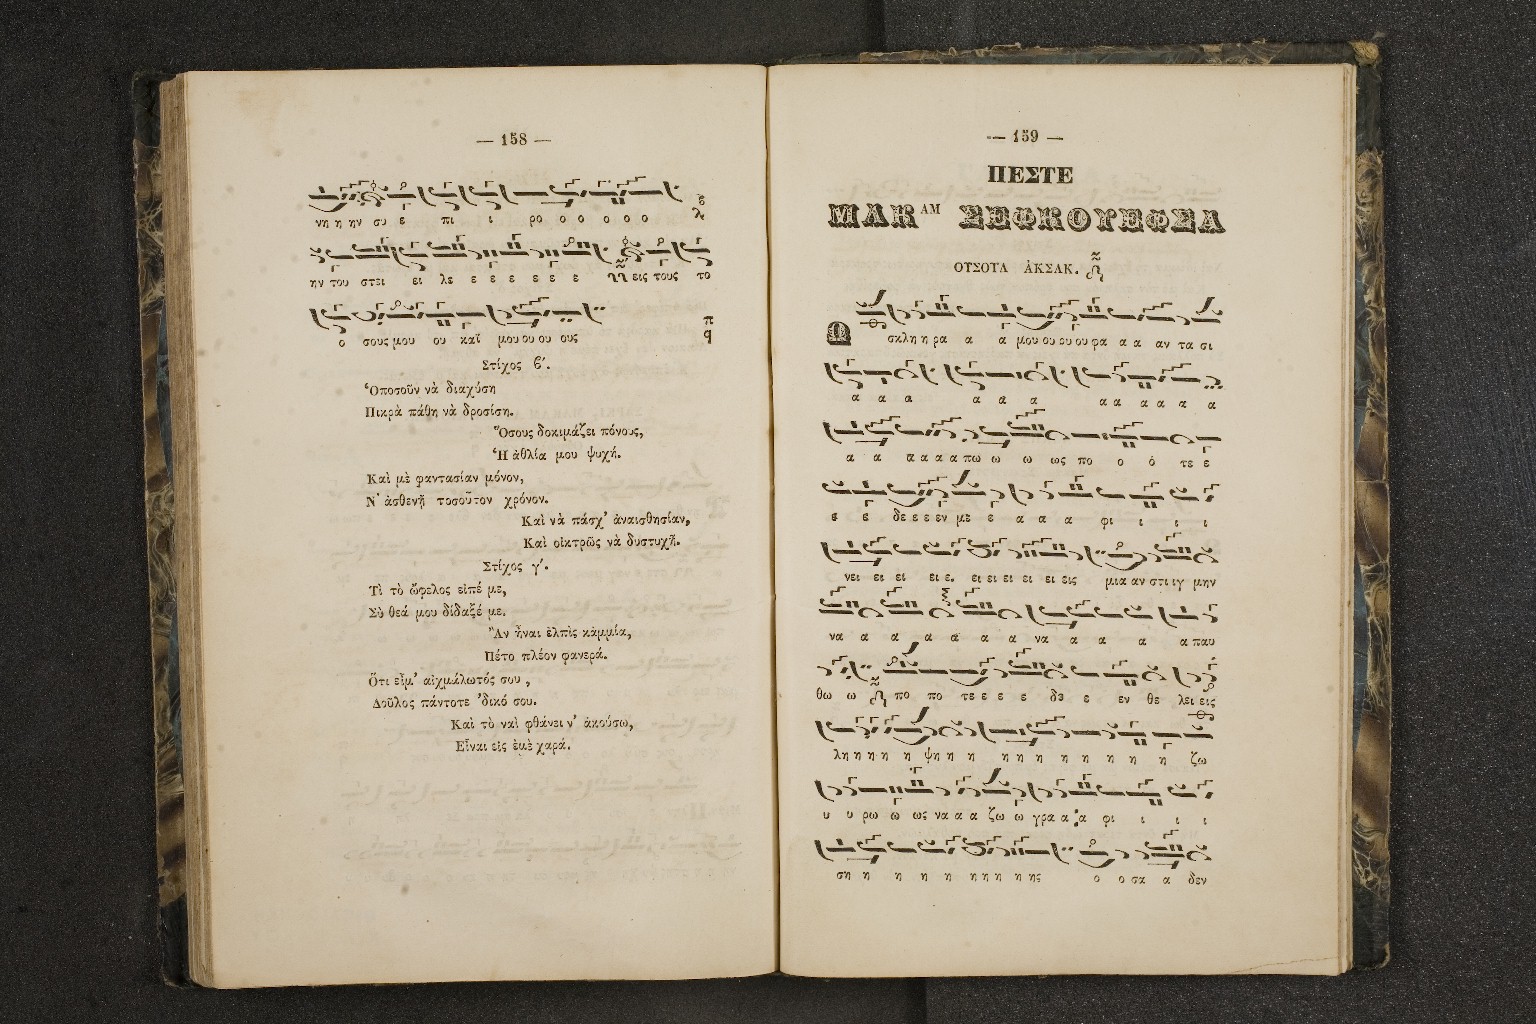 — 158 —
νη η ην συ ε πι ι ρο ο ο ο ο ο
ην του στει ει λε ε ε ε ε ε ε εις τους το
ο σους μου ου καϊ μου ου ου ους
Στίχος ϐ′.
Ὁποσοῦν νὰ διαχύση
Πικρὰ πάθη νὰ δροσίση.
Ὅσους δοκιμάζει πόνους,
Ἡ ἀθλία μου ψυχή.
Καὶ μὲ φαντασίαν μόνον,
Ν' ἀσθενῇ τοσοῦτον χρόνον.
Καὶ νὰ πάσχ' ἀναισθησίαν,
Καὶ οἰκτρῶς νὰ δυστυχῇ.
Στίχος γ′.
Τὶ τὸ ὤφελος εἰπέ με,
Σὺ θεά μου δίδαξέ με.
Ἂν ἦναι ἐλπὶς κἀμμία,
Πέτο πλέον φανερά.
Ὅτι εἶμ' αἰχμάλωτός σου,
Δοῦλος πάντοτε 'δικό σου.
Καὶ τὸ ναὶ φθάνει ν' ἀκούσω,
Εἶναι εἰς ἐμὲ χαρά.
— 159 —
ΠΕΣΤΕ
ΜΑΚΑΜ ΣΕΦΚΟΥΕΦΣΑ
ΟΥΣΟΥΛ ἈΚΣΑΚ.
Ω σκλη η ρα α α μου ου ου ου φα α α αν τα σι
α α α α α α α α α α α α
α α α α α α πω ω ω ως πο ο ὁ τε ε
ε ε δε ε ε εν με ε α α α φι ι ι ι
νει ει ει ει ε. ει ει ει ει ει εις μια αν στι ιγ μην
να α α α α α α να α α α α παυ
θω ω πο πο τε ε ε ε δε ε εν θε λει εις
λη η η η η ψη η η η η η η η η η η ζω
υ υ ρω ω ως να α α ζω ω γρα α α φι ι ι ι
ση η η η η η η η η ης ο ο σα α δεν